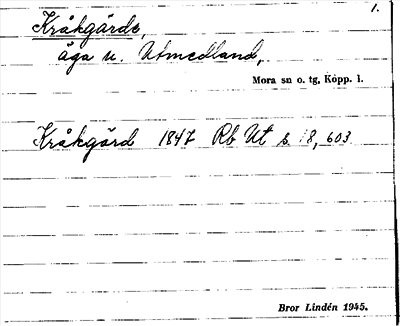 1.
Kråkgärde,
äga u. Utmedland,
Mora sn o. tg, Kopp. l.
Kråkgärd 1847 Rb Ut s. 18, 603
Bror Lindén 1945.